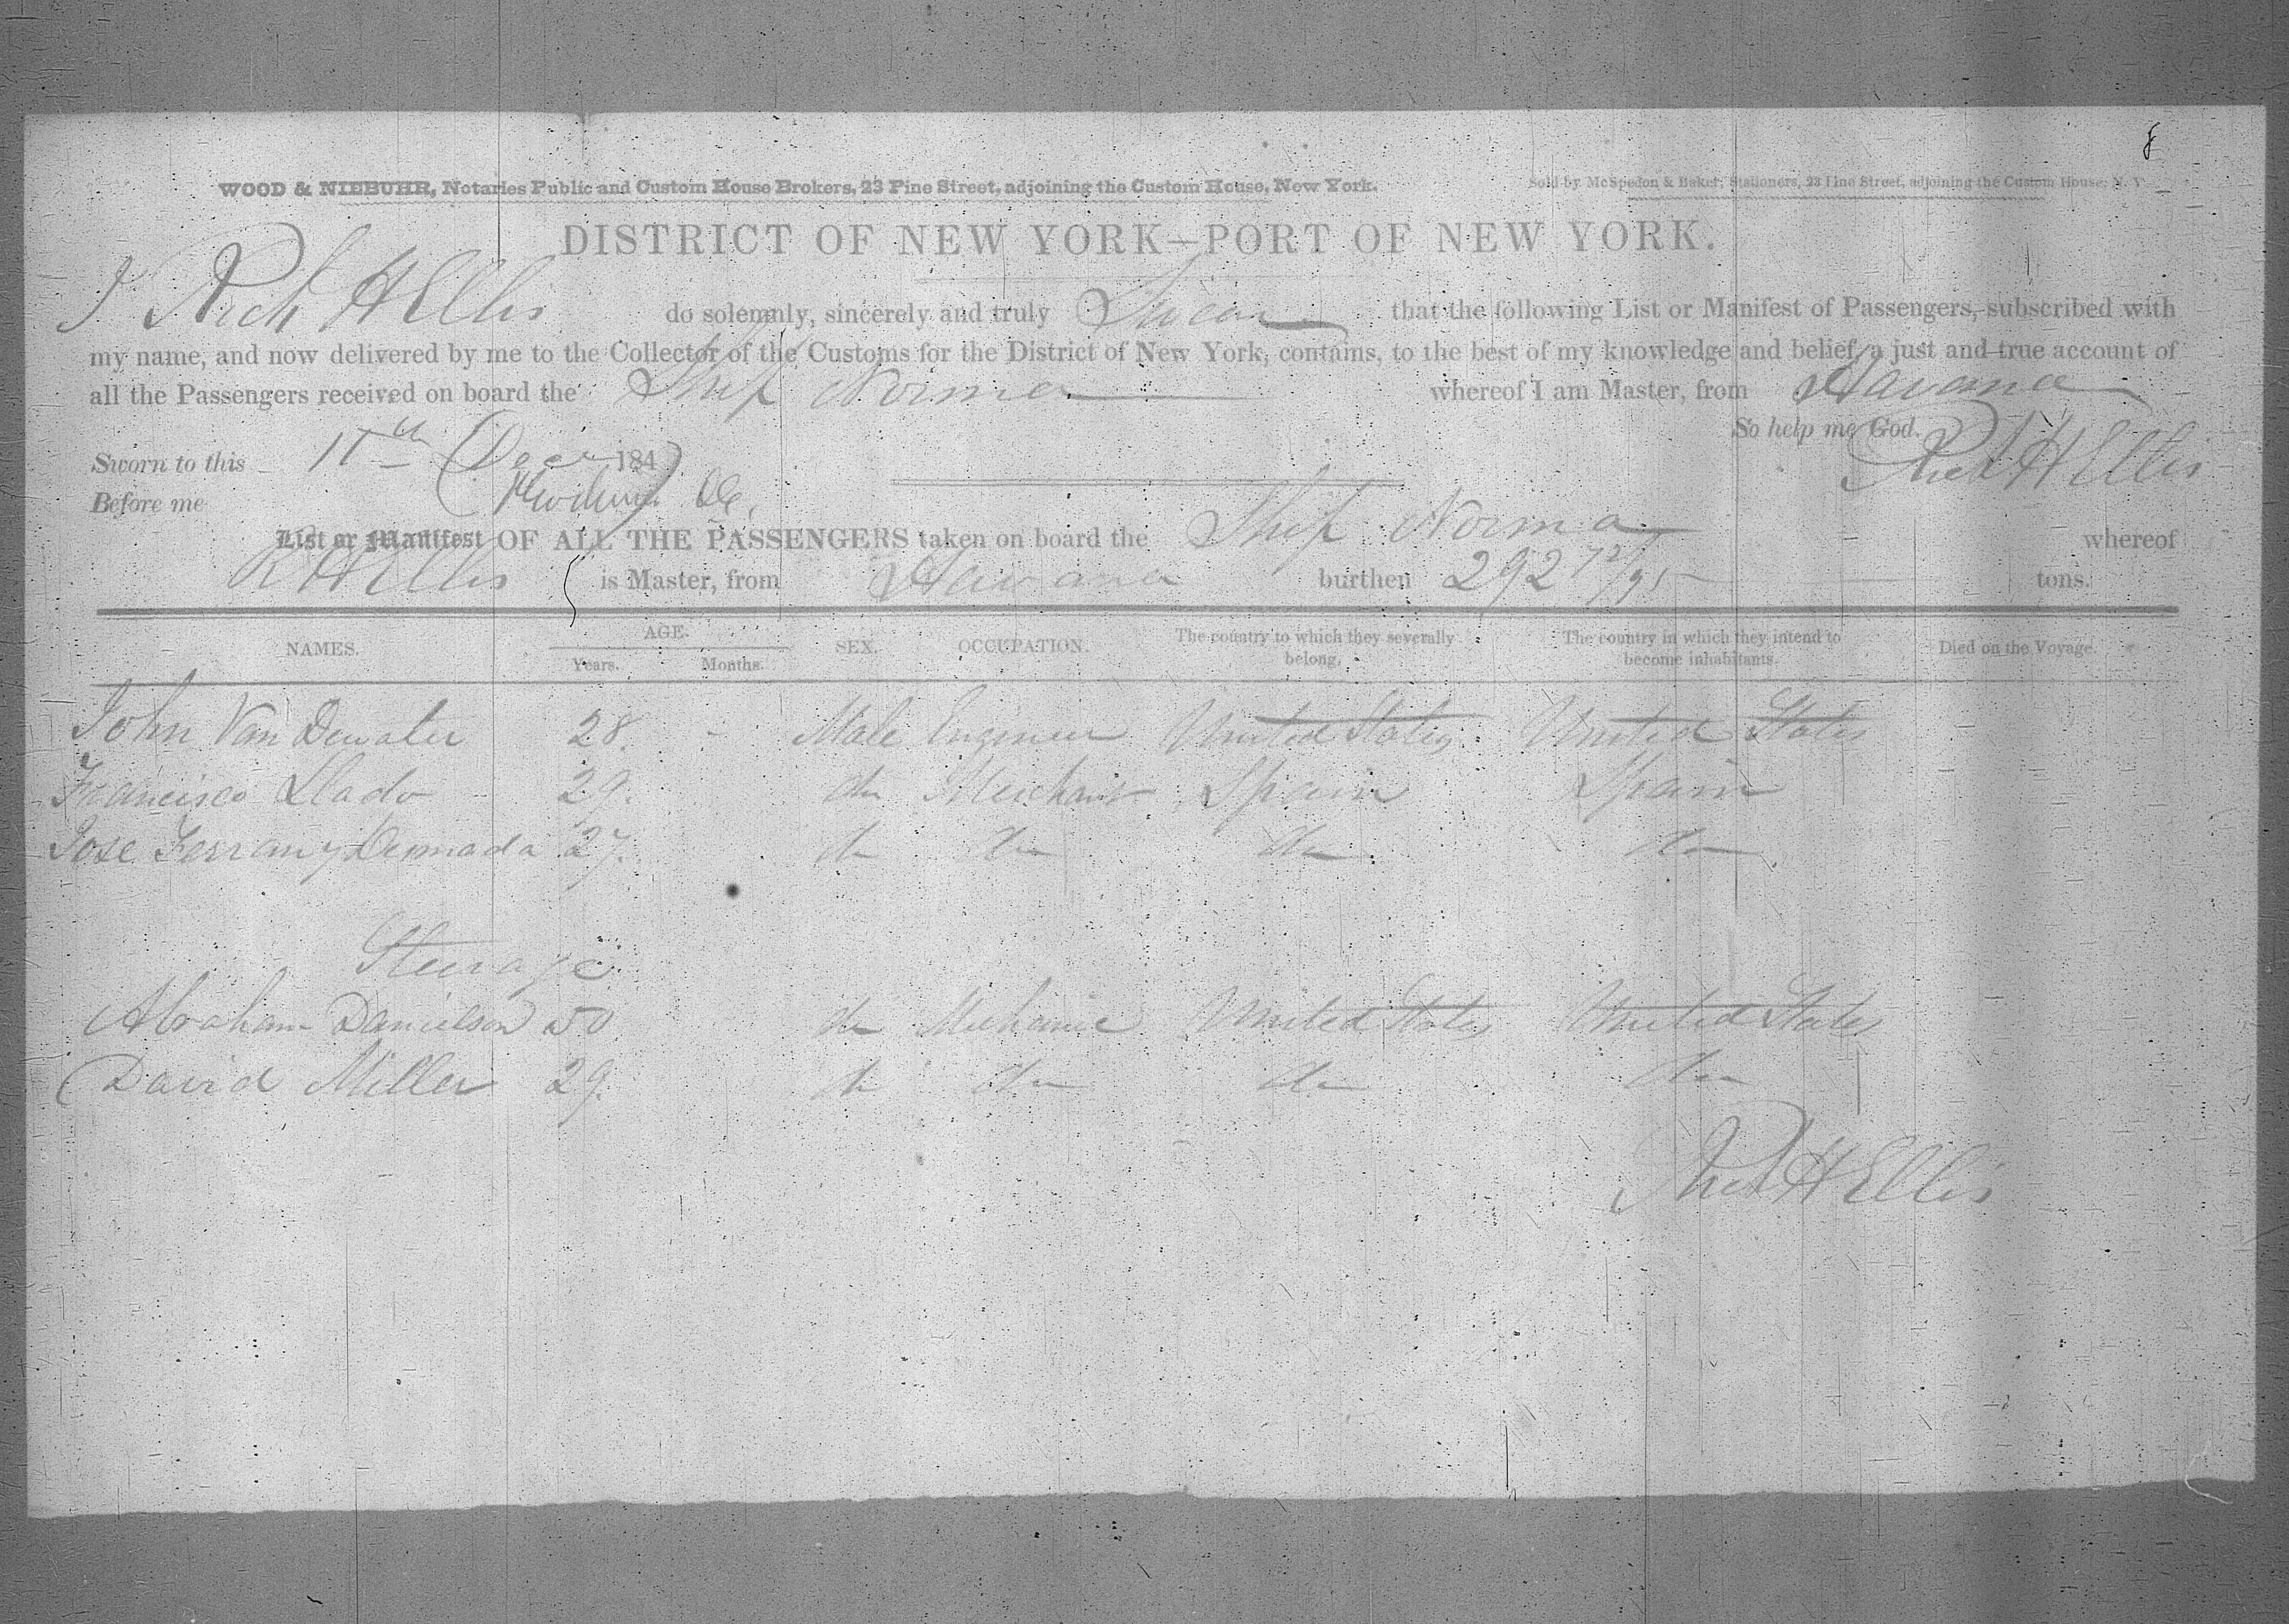 8
WOOD & NIEBUHR, Notaries Public and Custom House Brokers, 23 Pine Street, adjoining the Custom House, New York.
Sold by McSpedon & Baker, Stationers, 23 Pine Street, adjoining the Custom House, N. Y.
DISTRICT OF NEW YORK—PORT OF NEW YORK.
I Rich H Ellis do solemnly, sincerely and truly Swear that the following List or Manifest of Passengers, subscribed with
my name, and now delivered by me to the Collector of the Customs for the District of New York, contains, to the best of my knowledge and belief, a just and true account of
all the Passengers received on board the Ship Norma whereof I am Master, from Havana
So help me God.
Sworn to this 11th Decr 184
Rich H Ellis
Before me
List or Manifest OF ALL THE PASSENGERS taken on board the Ship Norma whereof
R H Ellis is Master, from Havana burthen 292 72/95 tons.
NAMES. AGE. Years. Months. SEX. OCCUPATION. The country to which they severally belong. The country in which they intend to become inhabitants. Died on the Voyage.
John Van Dewater 28. - Male Engineer United States United States
Francisco Llado 29. do Merchant Spain Spain
Jose Ferran y 27. do do do do
Steerage
Abraham Danielson 50 do Mechanic United States United States
David Miller 29. do do do do
Rich H Ellis